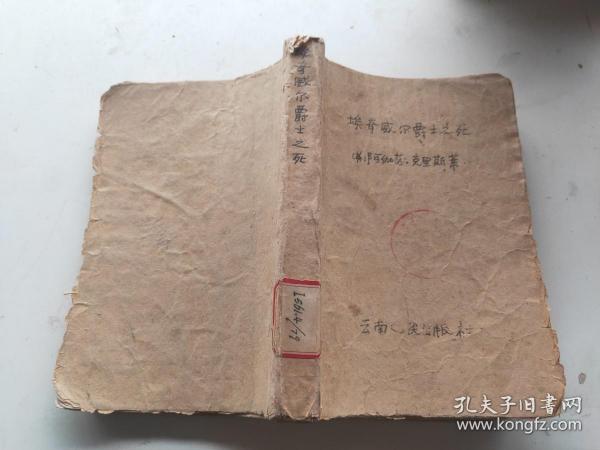 埃奇威尔爵士之死
奇威尔爵士之死
(英)阿加莎.克里斯蒂
I561.4/79
云南人民出版社
孔夫子旧书网
www.kongfz.com